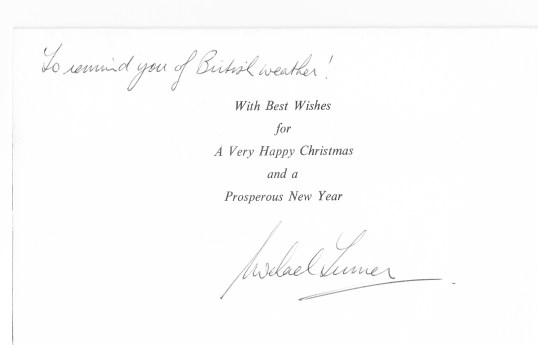 To remind you of British weather!
With Best Wishes
for
A Very Happy Christmas
and a
Prosperous New Year
Michael Turner